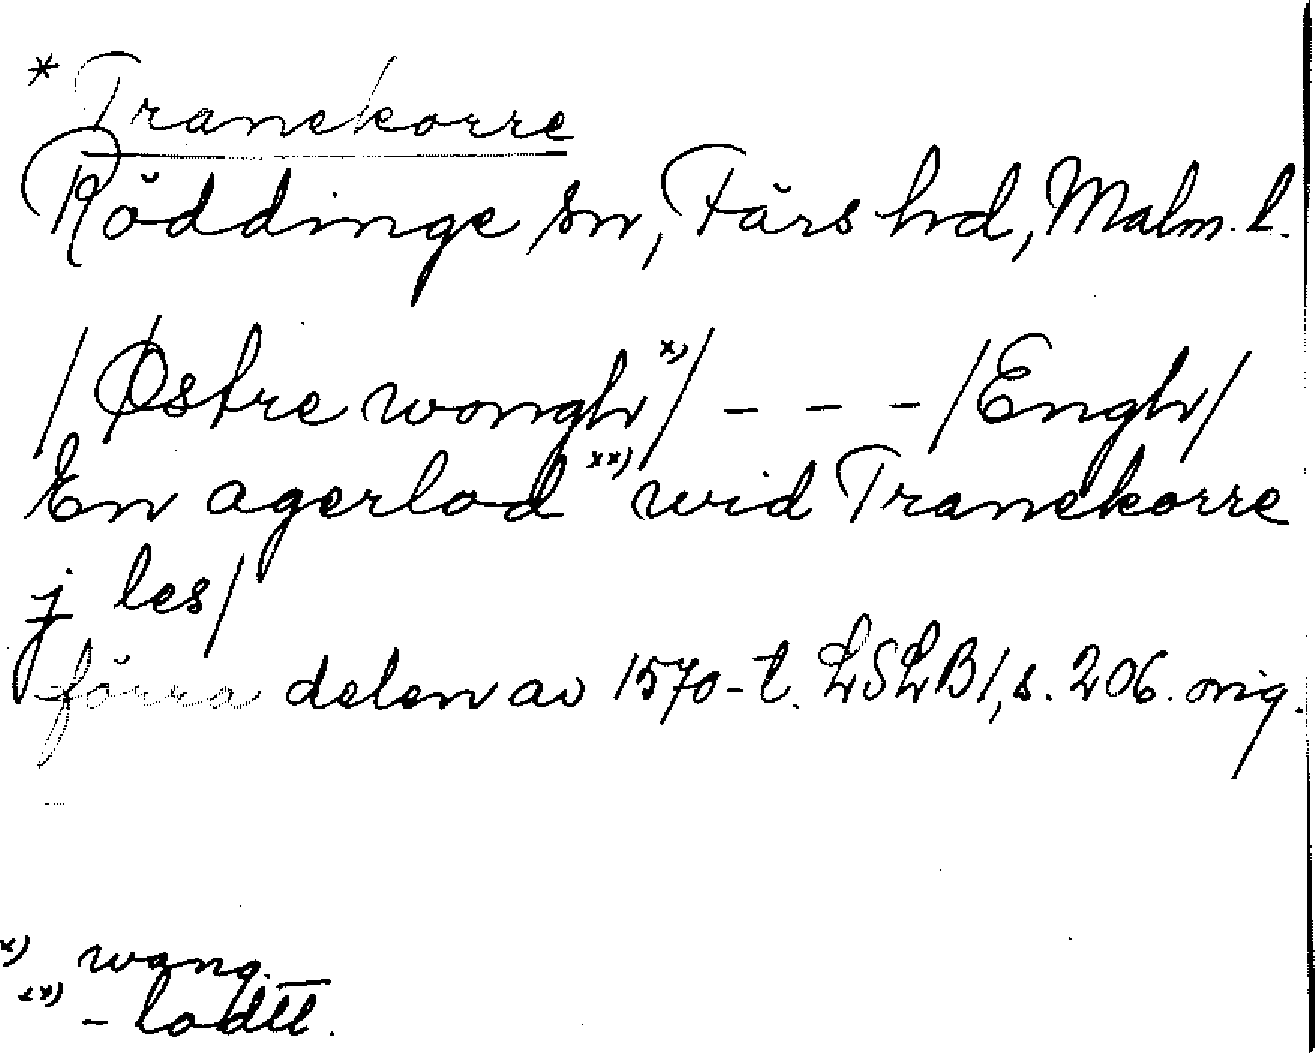 * Tranekorre
Röddinge sn, Färs hd, Malm. l.
/Østre wongh x)/ - - - /Engh/
En agerlod xx) wid Tranekorre
j les/
förra delen av 1570-t. LSLB I, s. 206. orig.
x) wang.
xx) - lodtt.